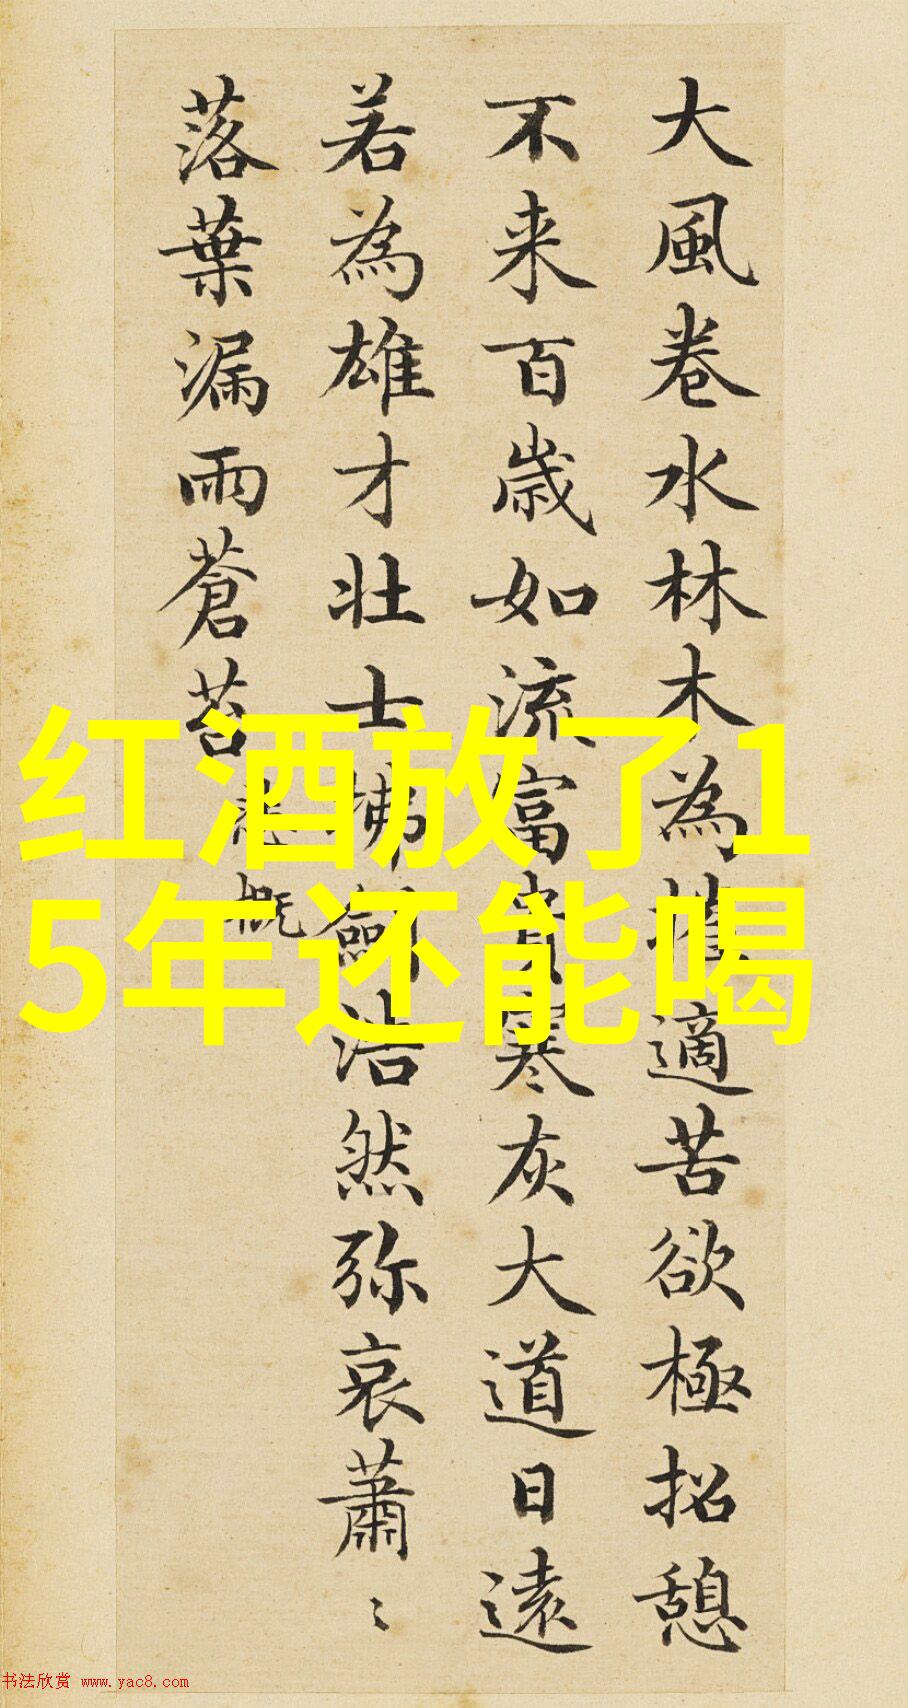 大風卷水林木為摧適苦欲極招憩
不来百歳如流富貴寒灰大道日遠
若為雄才壯士拂劍浩然弥哀蕭〻
落葉漏雨蒼苔
悲概
红酒放了1
5年还能喝
书法欣赏 www.yac8.com